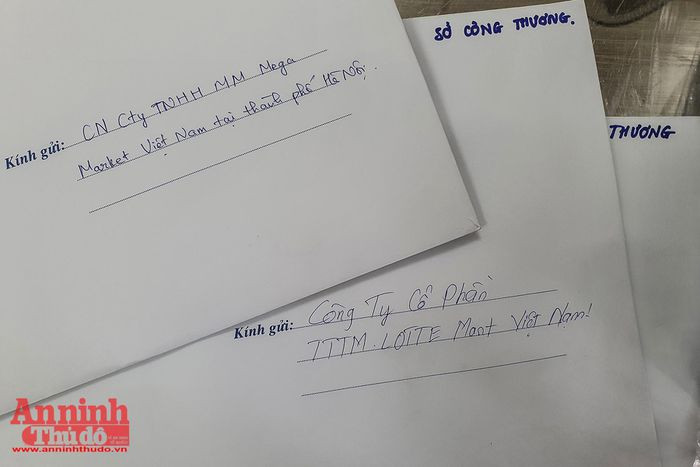 Kính gửi: CN Cty TNHH MM Mega
Market Việt Nam tại thành phố Hà Nội.
SỞ CÔNG THƯƠNG.
THƯƠNG
Kính gửi: Công Ty Cổ Phần
TTTM. LOTTE Mart Việt Nam!
An ninh
Thủ đô
www.anninhthudo.vn